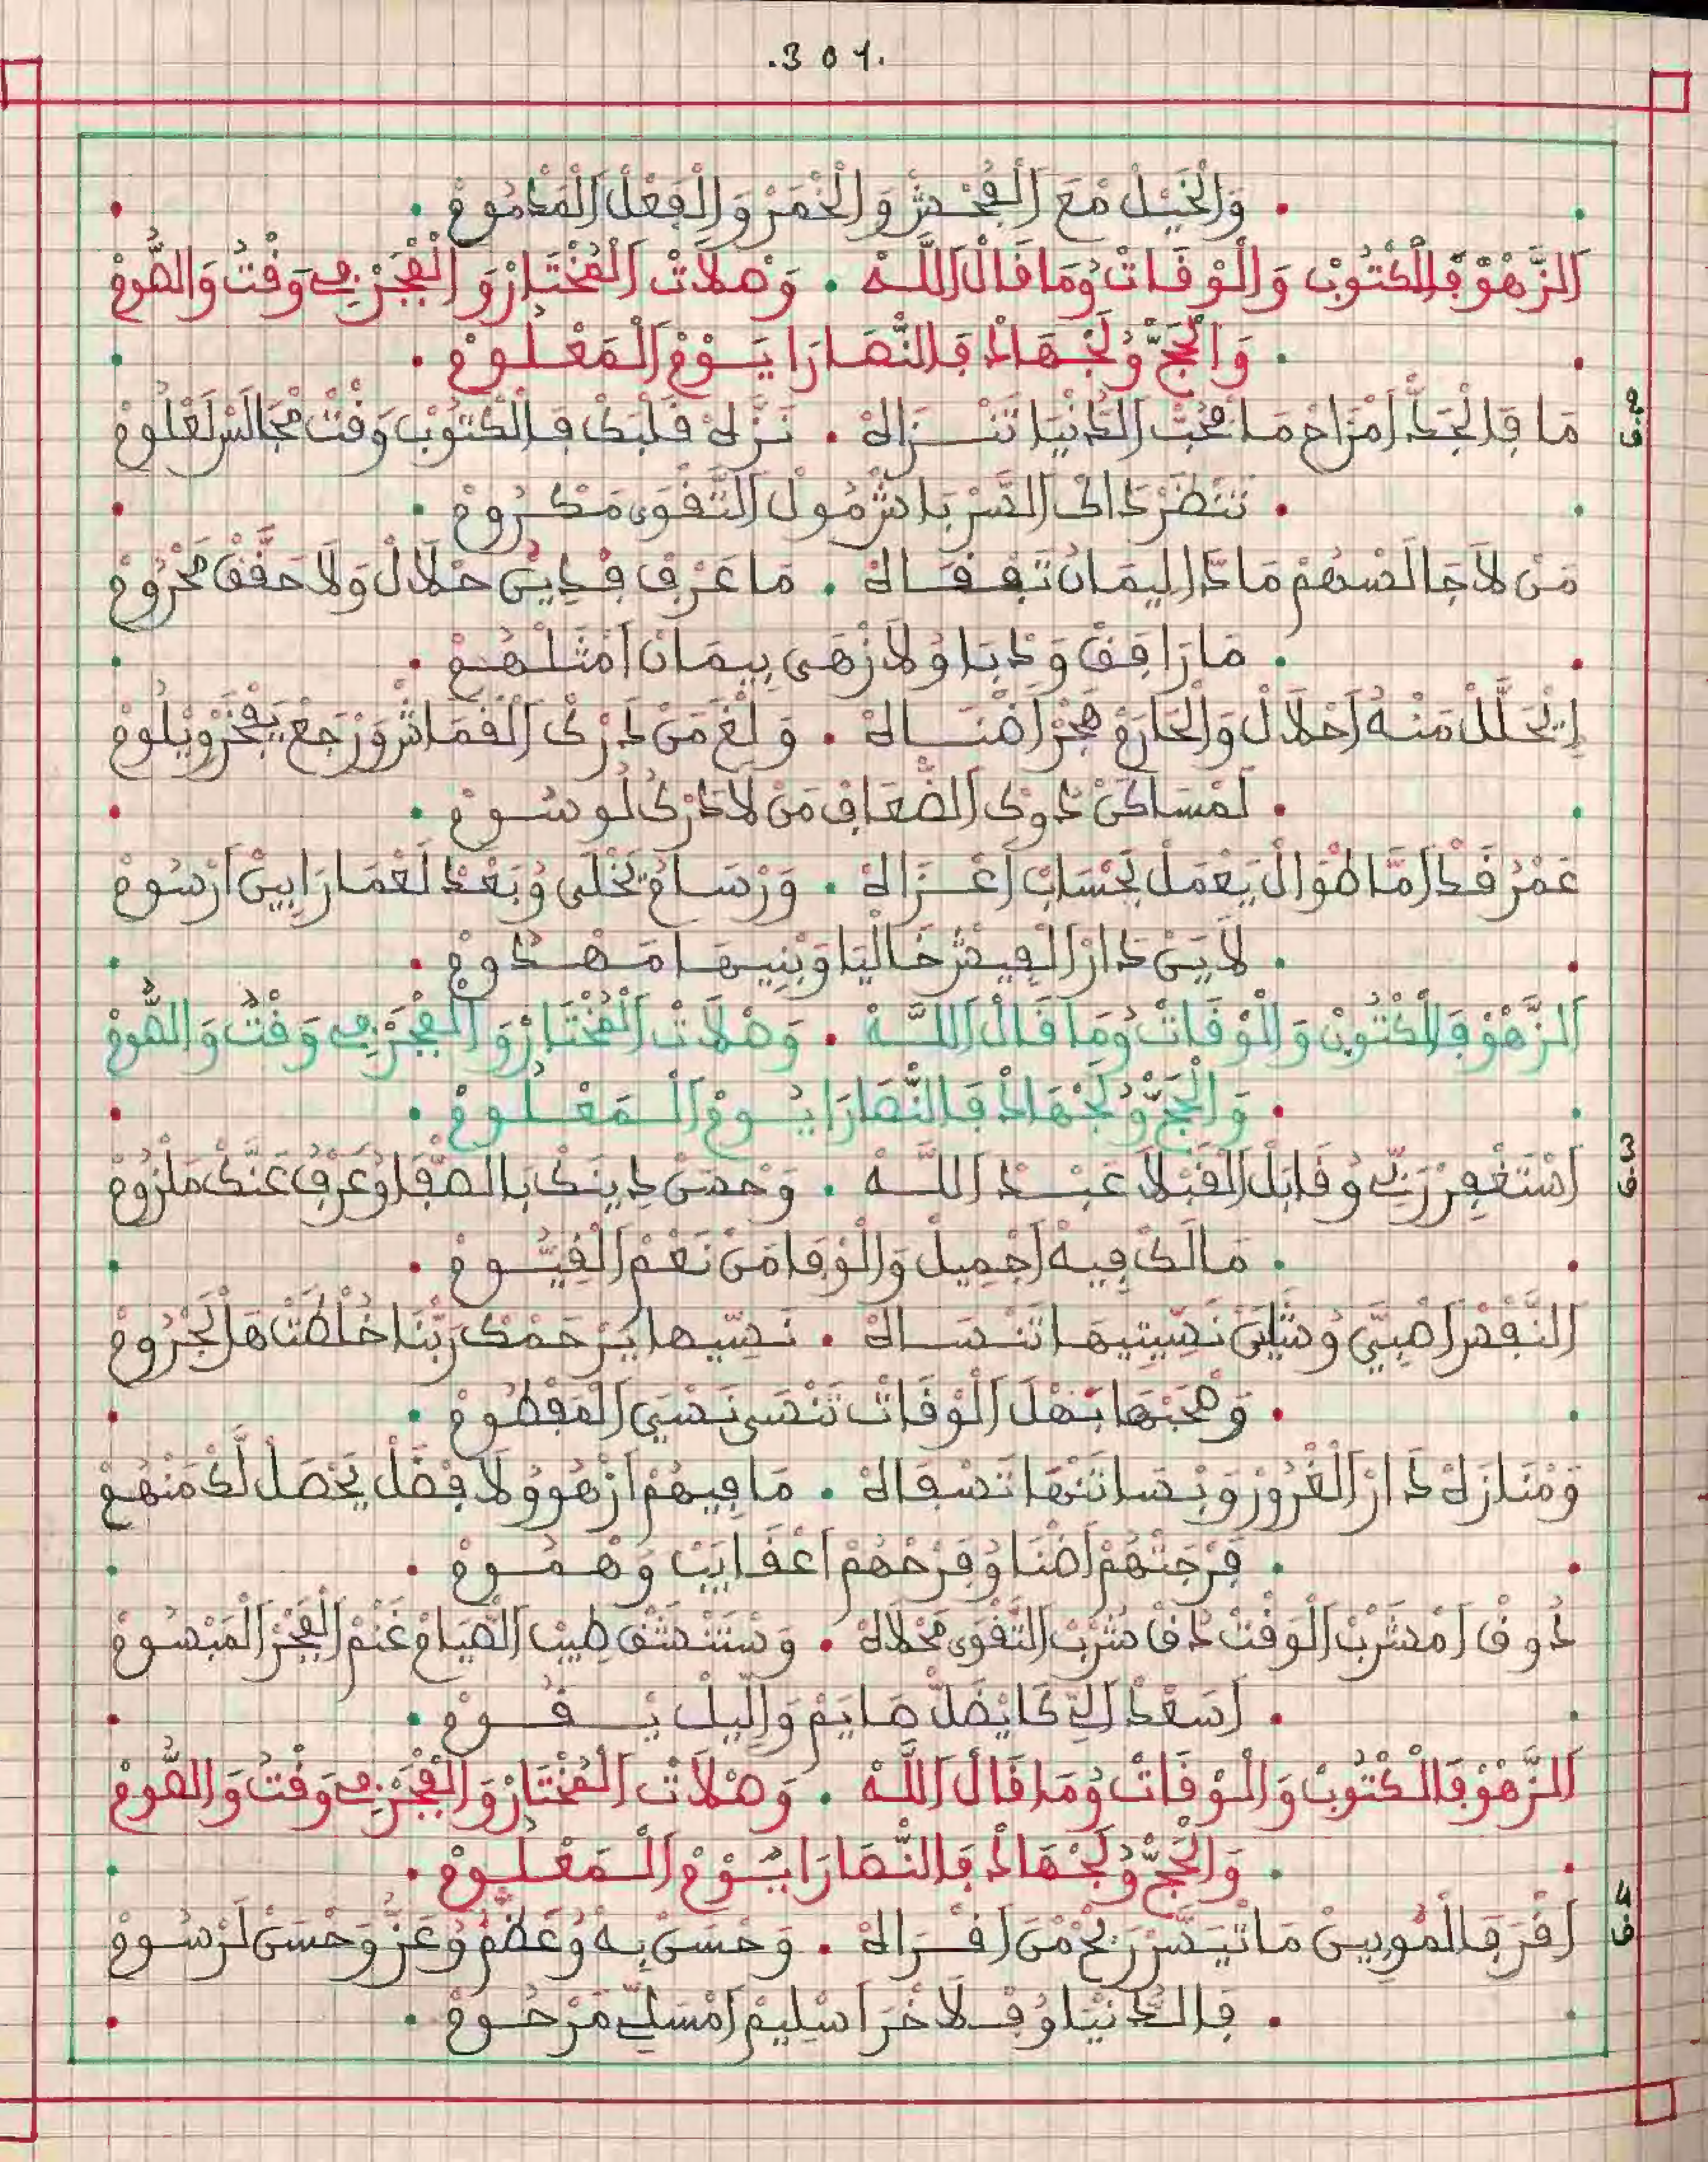 .301.
وَالْخَيْلْ مْعَ الْفُحْشْ وَالْخْمَرْ وَالْفَعْلْ الْمَذْمُومْ
الزَّهْوْ فَالْكْتُوبْ وَالْوْقَاتْ وُمَا قَالْ اللَّهْ . وَصْلَاتْ الْمُخْتَارْ وَالْفْجَرْ فِي وَقْتُ وَالصُّومْ
وَالْحَجّْ وُلَجْهَادْ فَالنّْصَارَا يَوْمْ الْمَعْلُومْ
ف2
مَا فَالْجَدّْ امْزَاحْ مَا مْحَبّْ الدَّنْيَا تَنْزَاهْ . نَزَّهْ قَلْبَكْ فَالْكْتُوبْ وَقْتْ مْجَالَسْ لَعْلُومْ
تَنْضَرْ دَاكْ السَّرّْ بَاشْ مُولْ التَّقْوَى مَكْرُومْ
مَنْ لَا جَالَسْهُمْ مَا دَّا لِيمَانْ تَفْقَاهْ . مَا عْرَفْ فْدِينُ حْلَالْ وَلَا حَقَّقْ مَحْرُومْ
مَا رَافَقْ وَدْبَا وُلَا زْهَى بِيمَانْ امْثَلْهُمْ
إِيْحَلَّلْ مَنُّه احْلَالْ وَالْحَارَمْ هْجَرْ اضْنَاهْ . وَلْغَ مَنْ دْرَكْ الْقْمَاشْ وَرْجَعْ يَفْخَرْ وِيْلُومْ
لَمْسَاكَنْ دُوكْ الضّْعَافْ مَنْ لَا دْرَكْ لُو سُومْ
عَمْرُ قَدّْ امَّا طْوَالْ يَعْمَلْ لَحْسَابْ اعْزَاهْ . وَرْسَامُ تَخْلَى وُبَعْدْ لَعْمَارَا يِبَنْ ارْسُومْ
لَايَنْ دَارْ الْفِيشْ خَالْيَا وَبْنِيهَا مَهْدُومْ
الزَّهْوْ فَالْكْتُوبْ وَالْوْقَاتْ وُمَا قَالْ اللَّهْ . وَصْلَاتْ الْمُخْتَارْ وَالْفْجَرْ فِي وَقْتُ وَالصُّومْ
وَالْحَجّْ وُلَجْهَادْ فَالنّْصَارَا يُومْ الْمَعْلُومْ
ف3
اسْتَغْفِرْ رَبِّي وُقَابَلْ الْقَبْلَا عَبْدْ اللَّهْ . وَحْصَنْ دِينَكْ بَالصّْفَا وُعَرْفُ عَنَّكْ مَلْزُومْ
مَالَكْ فِيهْ اجْمِيلْ وَالْوْفَا مَنْ نَعْمْ الْقِيُّومْ
النَّفْسْ اصْبِيَّ وُشَايَنْ نَسِّيتِيهَا تَنْسَاهْ . نَسِّيهَا يَرْحَمْكْ رَبّْنَا خُلْطَتْ هَلْ لَجْرُومْ
وَصْحَبْهَا بَهْلْ الْوْقَاتْ تَنْسَى نَسْيْ الْمَفْطُومْ
وَمْنَازَهْ دَارْ الْغْرُورْ وَبْسَاتَنْهَا تَسْفَاهْ . مَا فِيهُمْ ازْهُو وُلَا فْضَلْ يَحْصَلْ لَكْ مَنْهُمْ
فَرْجَتْهُمْ اضْنَا وُفَرْحْهُمْ اعْقَايَبْ وَهْمُومْ
ذُوقْ امْشَرْبْ الْوَقْتْ ذَاقْ شَرْبْ التَّقْوَى مَحْلَاهْ . وَسْتَنْشَقْ طِيبْ الصّْيَامْ غَنْمْ الْفْجَرْ الْمَبْسُومْ
اسَعْدْ الِّي كَا يْضَلّْ صَايَمْ وَاللِّيلْ يْقُومْ
الزَّهْوْ فَالْكْتُوبْ وَالْوْقَاتْ وُمَا قَالْ اللَّهْ . وَصْلَاتْ الْمُخْتَارْ وَالْفْجَرْ فِي وَقْتُ وَالصُّومْ
وَالْحَجّْ وُلَجْهَادْ فَالنّْصَارَا يَوْمْ الْمَعْلُومْ
ف4
اقْرَ فَالْمُوبِينْ مَا تْيَسَّرْ رَبْحْ مْنَ اقْرَاهْ . وَحْسَنْ بِهْ وُعَظّْمُ وُعَزُّ وَحْسَنْ لَرْسُومْ
فَالدَّنْيَا وُفْلَاخْرَا سْلِيمْ امْسَلِّي مَرْحُومْ